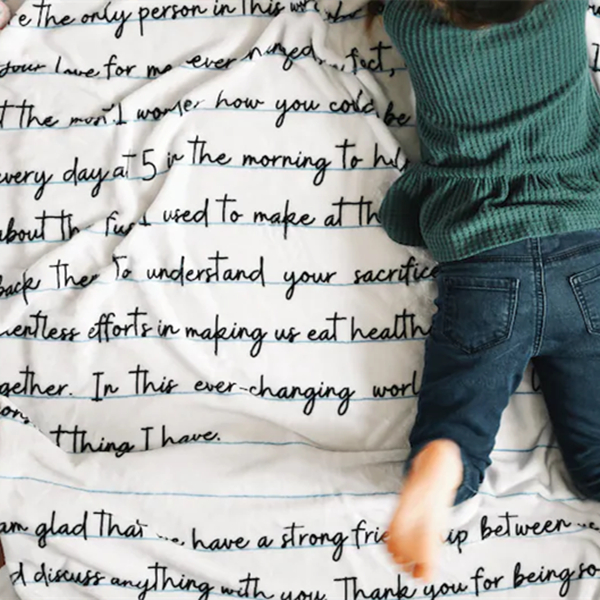 e the only person in this
your love for me ever
t the I wonder how you could be
every day at 5 in the morning to
about th used to make at th
back then to understand your sacrifice
entless efforts in making us eat health
gether. In this ever-changing worl
thing I have.
am glad that we have a strong frie ip between
d discuss anything with you. Thank you for being so